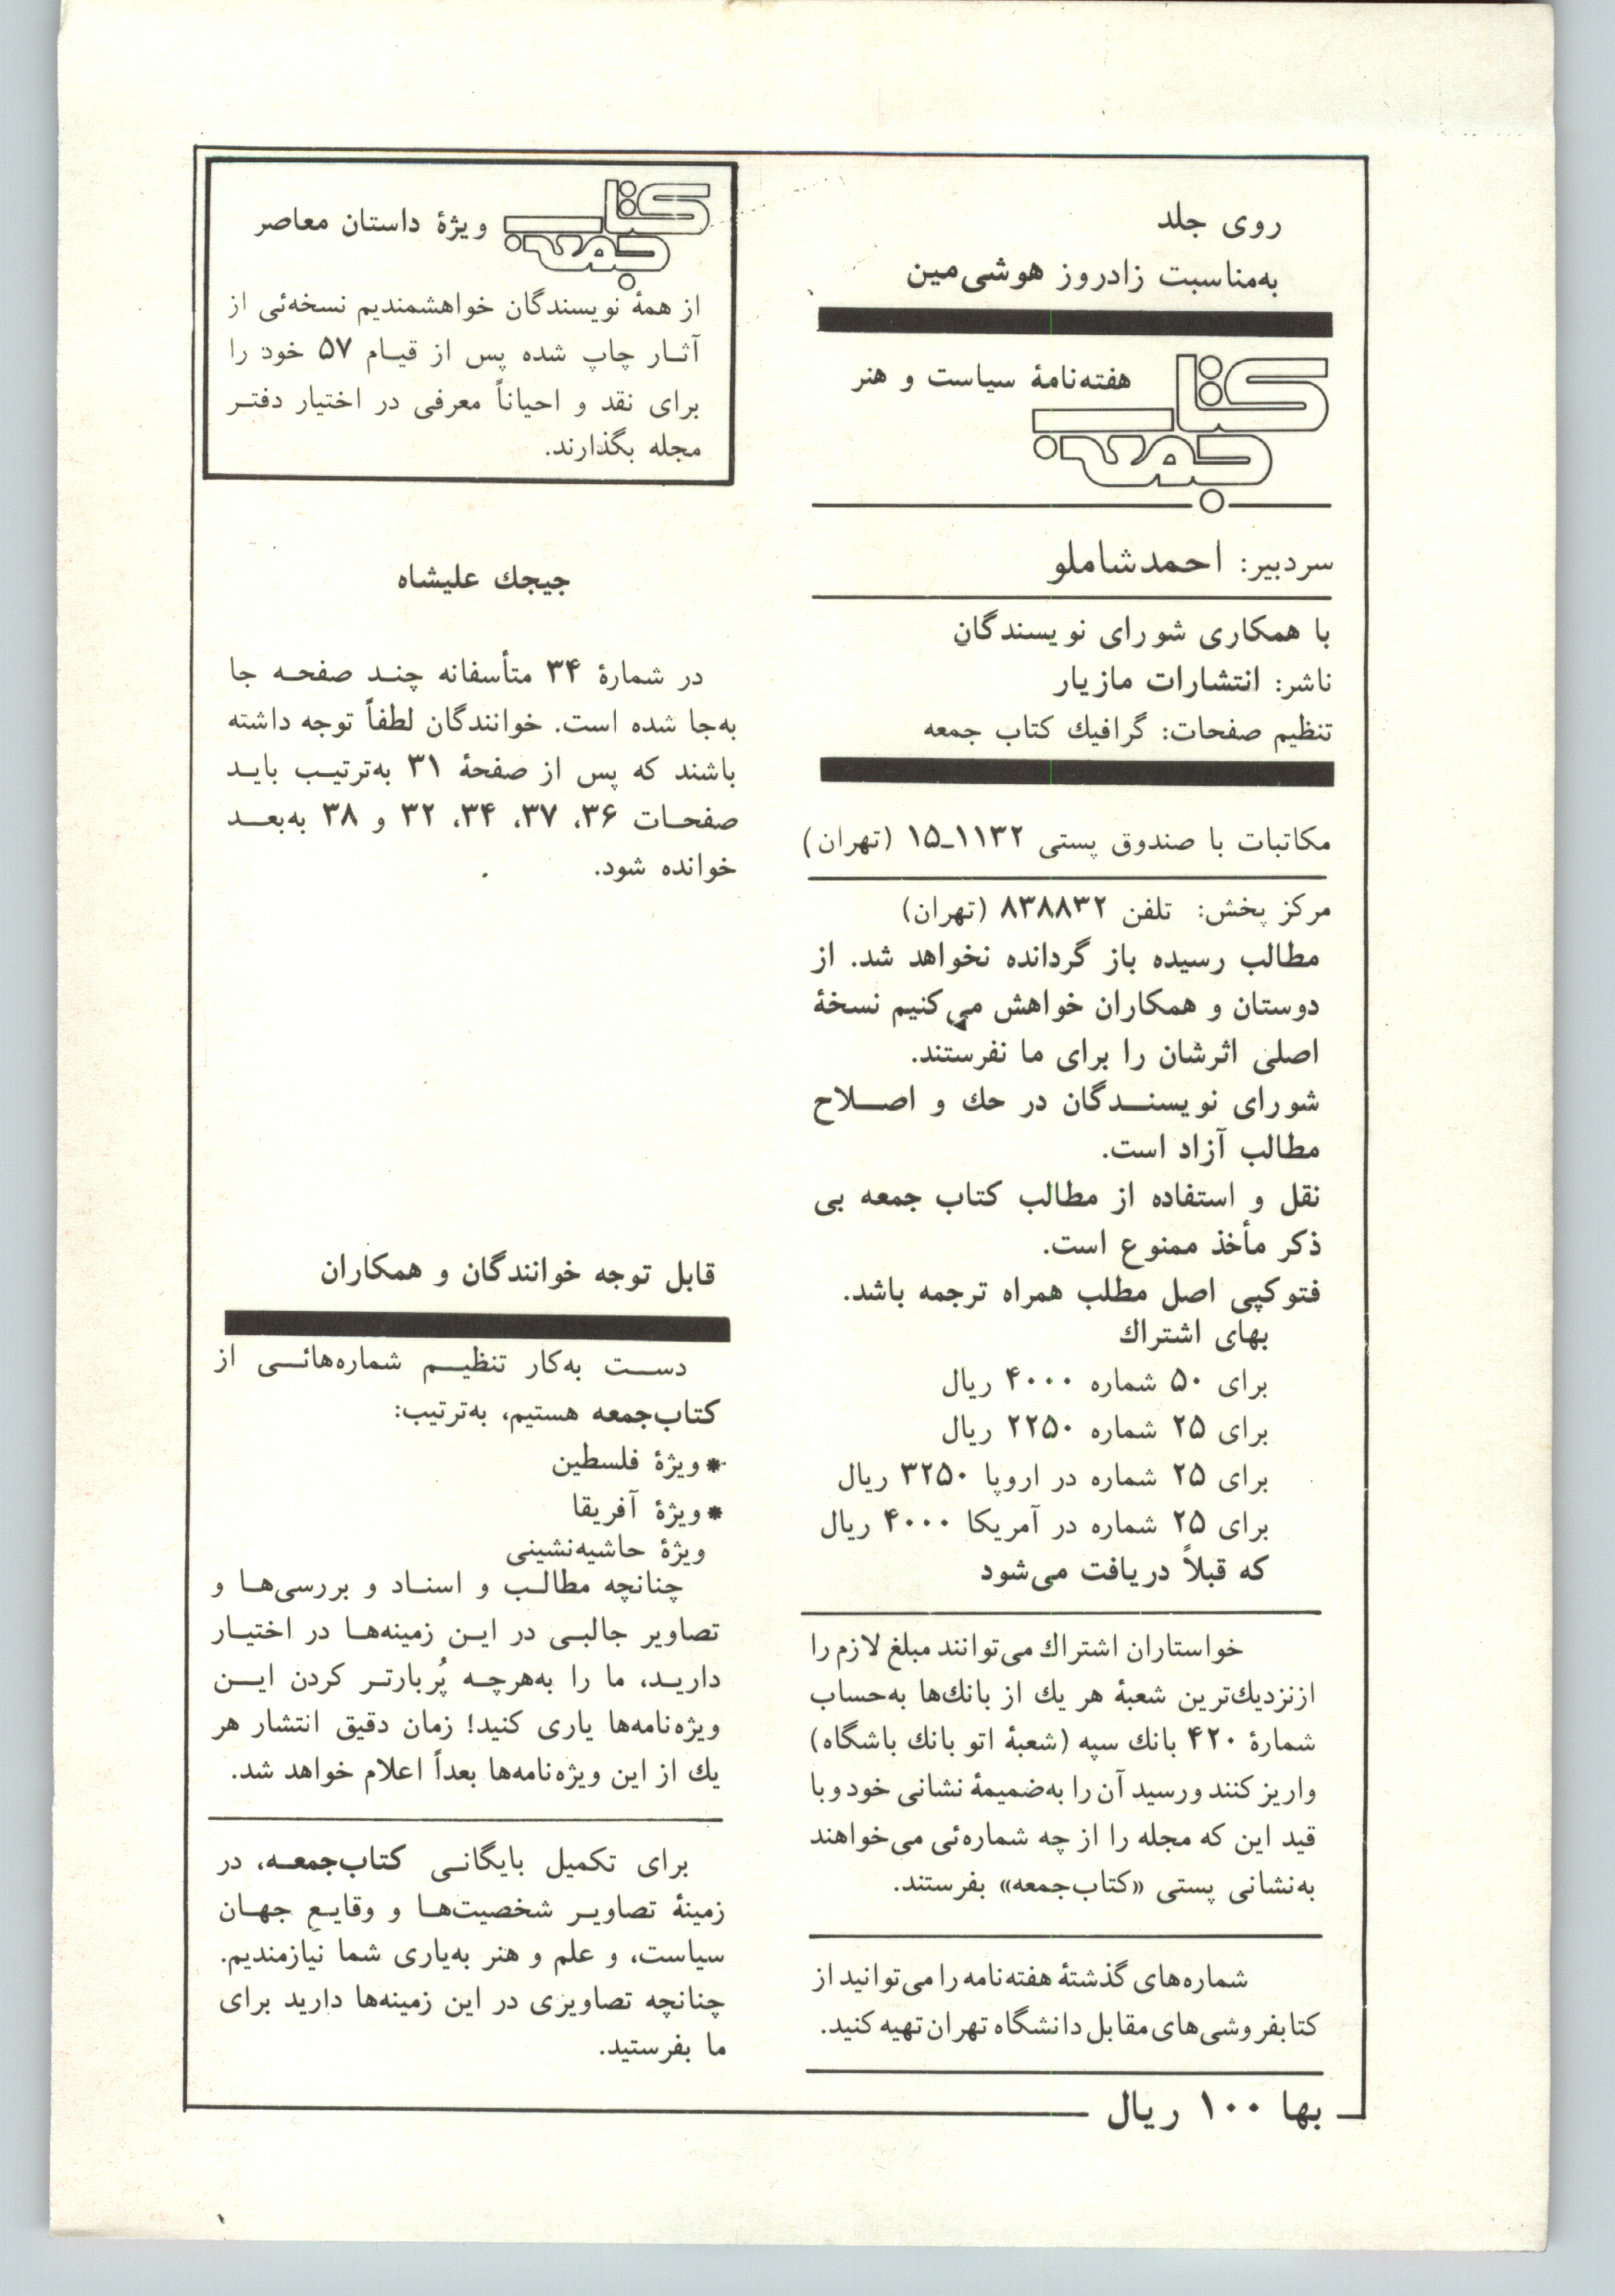 روی جلد
به‌مناسبت زادروز هوشی‌مین
کتاب
هفته‌نامهٔ سیاست و هنر
جمعه
سردبیر: احمدشاملو
با همکاری شورای نویسندگان
ناشر: انتشارات مازیار
تنظیم صفحات: گرافیك کتاب جمعه
مکاتبات با صندوق پستی ۱۱۳۲ـ۱۵ (تهران)
مرکز پخش: تلفن ۸۳۸۸۳۲ (تهران)
مطالب رسیده باز گردانده نخواهد شد. از
دوستان و همکاران خواهش می‌کنیم نسخهٔ
اصلی اثرشان را برای ما نفرستند.
شورای نویسنـــدگان در حك و اصـــلاح
مطالب آزاد است.
نقل و استفاده از مطالب کتاب جمعه بی
ذکر مأخذ ممنوع است.
فتوکپی اصل مطلب همراه ترجمه باشد.
بهای اشتراك
برای ۵۰ شماره ۴۰۰۰ ریال
برای ۲۵ شماره ۲۲۵۰ ریال
برای ۲۵ شماره در اروپا ۳۲۵۰ ریال
برای ۲۵ شماره در آمریکا ۴۰۰۰ ریال
که قبلاً دریافت می‌شود
خواستاران اشتراك می‌توانند مبلغ لازم را
ازنزدیك‌ترین شعبهٔ هر یك از بانك‌ها به‌حساب
شمارهٔ ۴۲۰ بانك سپه (شعبهٔ اتو بانك باشگاه)
واریز کنند ورسید آن را به‌ضمیمهٔ نشانی خود وبا
قید این که مجله را از چه شماره‌ئی می‌خواهند
به‌نشانی پستی «کتاب‌جمعه» بفرستند.
شماره‌های گذشتهٔ هفته‌نامه را می‌توانید از
کتابفروشی‌های مقابل دانشگاه تهران تهیه کنید.
بها ۱۰۰ ریال
کتاب
جمعه
ویژهٔ داستان معاصر
از همهٔ نویسندگان خواهشمندیم نسخه‌ئی از
آثـار چاپ شده پس از قیـام ۵۷ خود را
برای نقد و احیاناً معرفی در اختیار دفتـر
مجله بگذارند.
جیجك علیشاه
در شمارهٔ ۳۴ متأسفانه چنـد صفحـه جا
به‌جا شده است. خوانندگان لطفاً توجه داشته
باشند که پس از صفحهٔ ۳۱ به‌ترتیـب بایـد
صفحـات ۳۶، ۳۷، ۳۴، ۳۲ و ۳۸ به‌بعـد
خوانده شود.
قابل توجه خوانندگان و همکاران
دســت به‌کار تنظیــم شماره‌هائــی از
کتاب‌جمعه هستیم، به‌ترتیب:
* ویژهٔ فلسطین
* ویژهٔ آفریقا
ویژهٔ حاشیه‌نشینی
چنانچه مطالـب و اسنـاد و بررسی‌هـا و
تصاویر جالبـی در ایـن زمینه‌هـا در اختیـار
داریـد، ما را به‌هرچـه پُربارتـر کردن ایــن
ویژه‌نامه‌ها یاری کنید! زمان دقیق انتشار هر
یك از این ویژه‌نامه‌ها بعداً اعلام خواهد شد.
برای تکمیل بایگانـی کتاب‌جمعـه، در
زمینهٔ تصاویـر شخصیت‌هـا و وقایـع جهـان
سیاست، و علم و هنر به‌یاری شما نیازمندیم.
چنانچه تصاویری در این زمینه‌ها دارید برای
ما بفرستید.